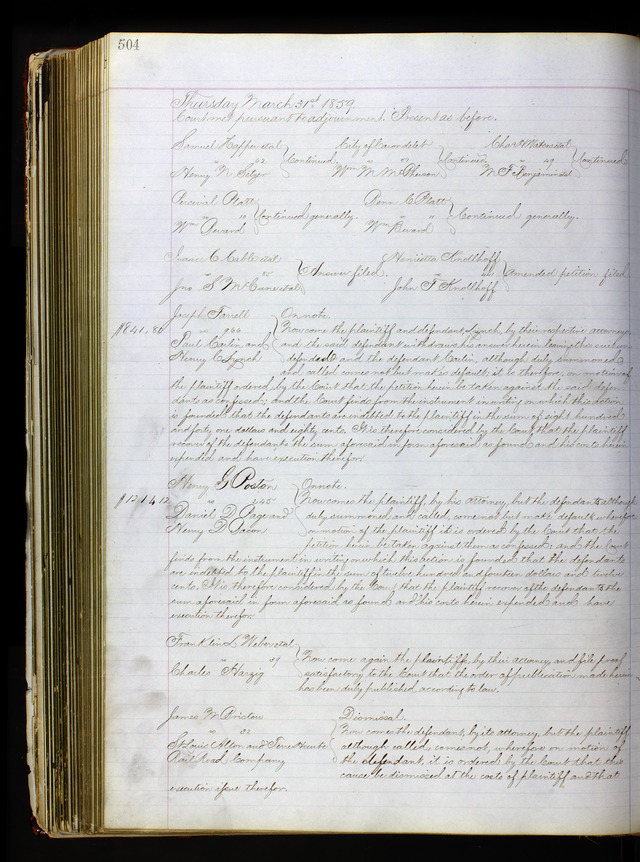 504
Thursday March 31st 1859
Court met pursuant to adjournment. Present as before.
Samuel et al
" 32 Continued
Henry N.
City of Carondelet
" Continued
Wm M. McPherson
Chas et al
" 49 Continued
M. F. Benjamin et al
Percival Platt
" " Continued generally.
Wm
Penn C. Platt
" " Continued generally.
Wm
Isaac C. et al
" Answer filed.
Jno S. McCune et al
Henrietta Knollhoff
Amended petition filed
John F. Knollhoff
Joseph Farrell On note.
$841,80 " 900 Now come the plaintiff and defendant, Lynch, by their respective attorneys
Paul Curlin, and and the said defendant withdraws his answer herein leaving this suit
Henry C. Lynch defended and the defendant Curlin, although duly summoned
and called comes not but makes default; it is therefore, on motion of
the plaintiff ordered, by the Court that the petition herein be taken against the said defen
dants as confessed; and the Court finds from the instrument in writing on which this action
is founded that the defendants are indebted to the plaintiff in the sum of eight hundred
and forty one dollars and eighty cents. It is therefore considered by the Court that the plaintiff
recover of the defendants the sum aforesaid in form aforesaid, as found and his costs herein
expended and have execution therefor.
Henry G Poston, On note.
$1214,12 " 245 Now comes the plaintiff by his attorney, but the defendants although
Daniel D. Page and duly summoned and called, come not but make default, wherefore
Henry D. Bacon on motion of the plaintiff it is ordered by the Court that the
petition herein be taken against them as confessed; and the Court
finds from the instrument in writing on which this action is founded that the defendants
are indebted to the plaintiff in the sum of twelve hundred and fourteen dollars and twelve
cents. It is therefore considered by the Court that the plaintiff recover of the defendants the
sum aforesaid in form aforesaid as found and his costs herein expended and have
execution therefor.
Franklin L. et al
" 49 Now come again the plaintiffs, by their attorney and file proof
Charles Harzig satisfactory to the Court that the order of publication made herein
has been duly published according to law.
James M. Bristow Dismissal.
" 32 Now comes the defendant, by its attorney, but the plaintiff
St Louis Alton and Terre Haute although called, comes not, wherefore on motion of
Rail Road Company the defendant, it is ordered by the Court that this
cause be dismissed at the costs of plaintiff and that
execution issue therefor.